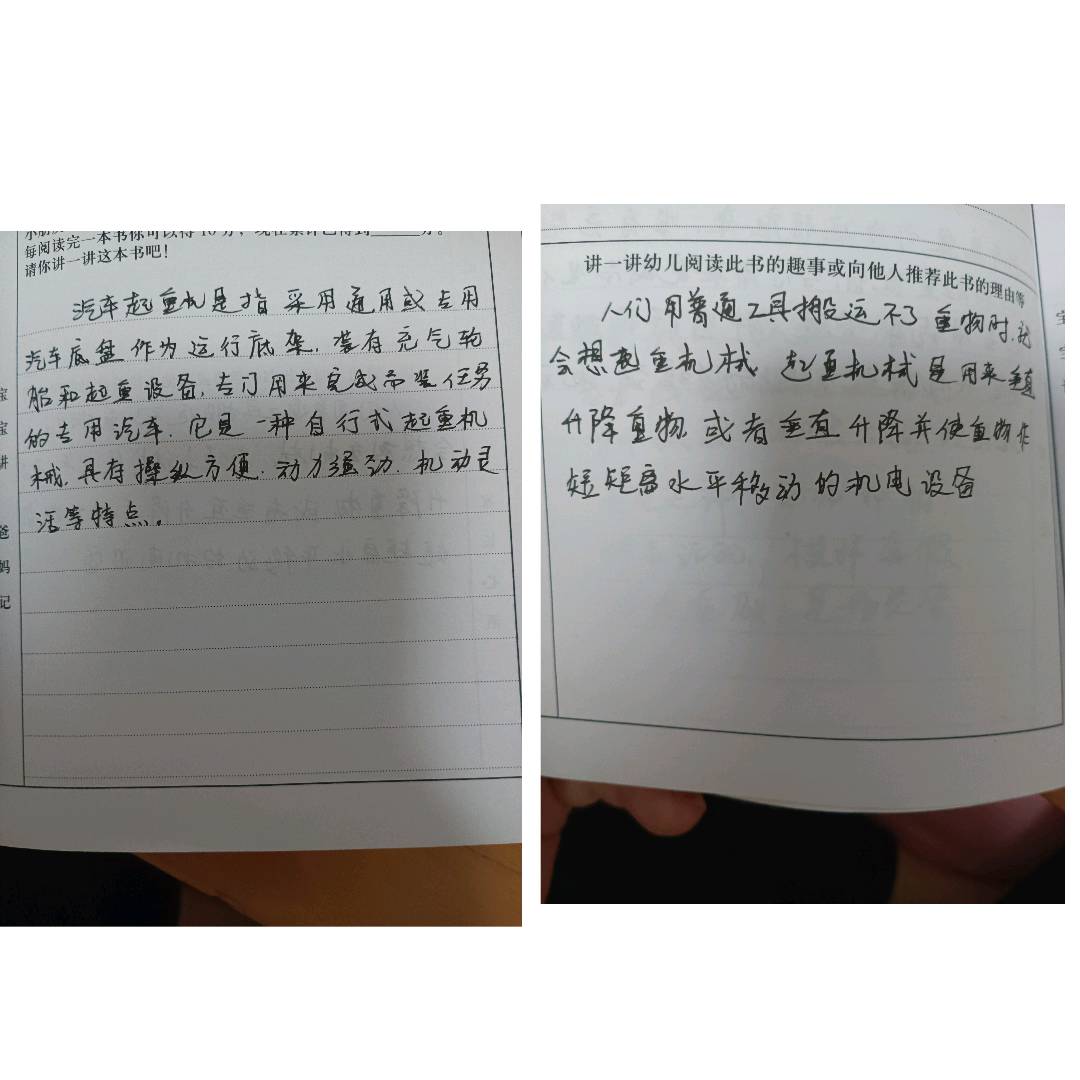 每阅读完一本书你可以得10分，现在累计已得到____分。
请你讲一讲这本书吧！
汽车起重机是指采用通用或专用
汽车底盘作为运行底架，装有充气轮
胎和起重设备，专门用来完成吊装任务
的专用汽车．它是一种自行式起重机
械，具有操纵方便．动力强劲．机动灵
活等特点。
宝
宝
讲
爸
妈
记
讲一讲幼儿阅读此书的趣事或向他人推荐此书的理由等
人们用普通工具搬运不了重物时，就
会想起重机械．起重机械是用来垂直
升降重物或者垂直升降并使重物作
短距离水平移动的机电设备
宝